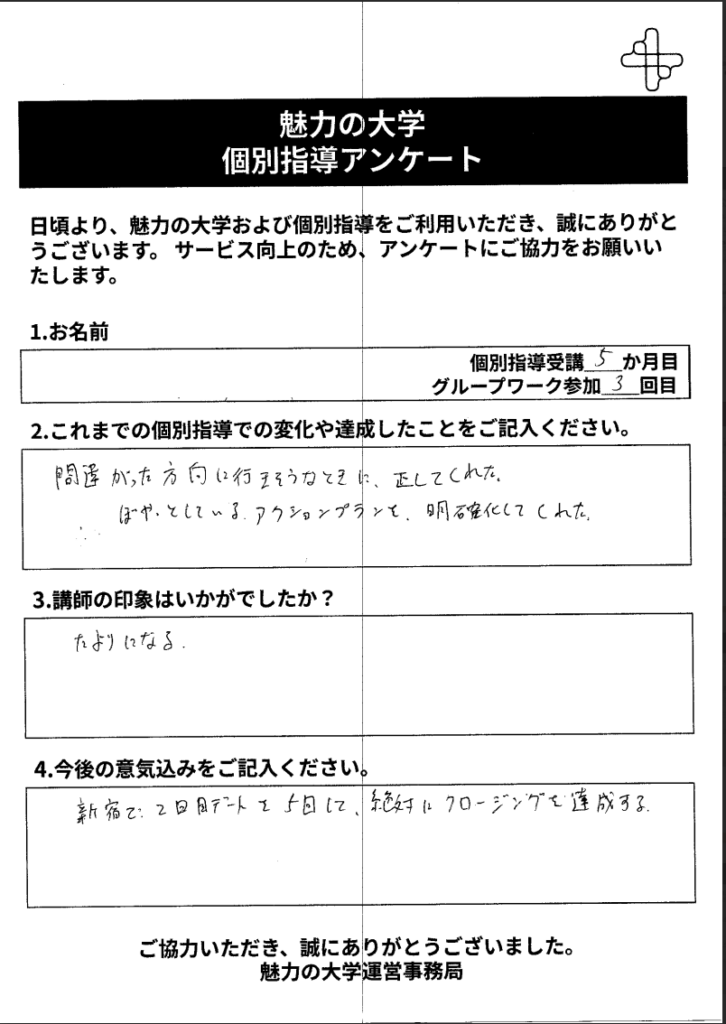 魅力の大学
個別指導アンケート
日頃より、魅力の大学および個別指導をご利用いただき、誠にありがと
うございます。 サービス向上のため、アンケートにご協力をお願いい
たします。
1.お名前
個別指導受講 5 か月目
グループワーク参加 3 回目
2.これまでの個別指導での変化や達成したことをご記入ください。
間違がった方向に行きそうなときに、正してくれた。
ぼやっとしているアクションプランを、明確化してくれた。
3.講師の印象はいかがでしたか？
たよりになる。
4.今後の意気込みをご記入ください。
新宿で2回目デートを5回して、絶対にクロージングを達成する。
ご協力いただき、誠にありがとうございました。
魅力の大学運営事務局